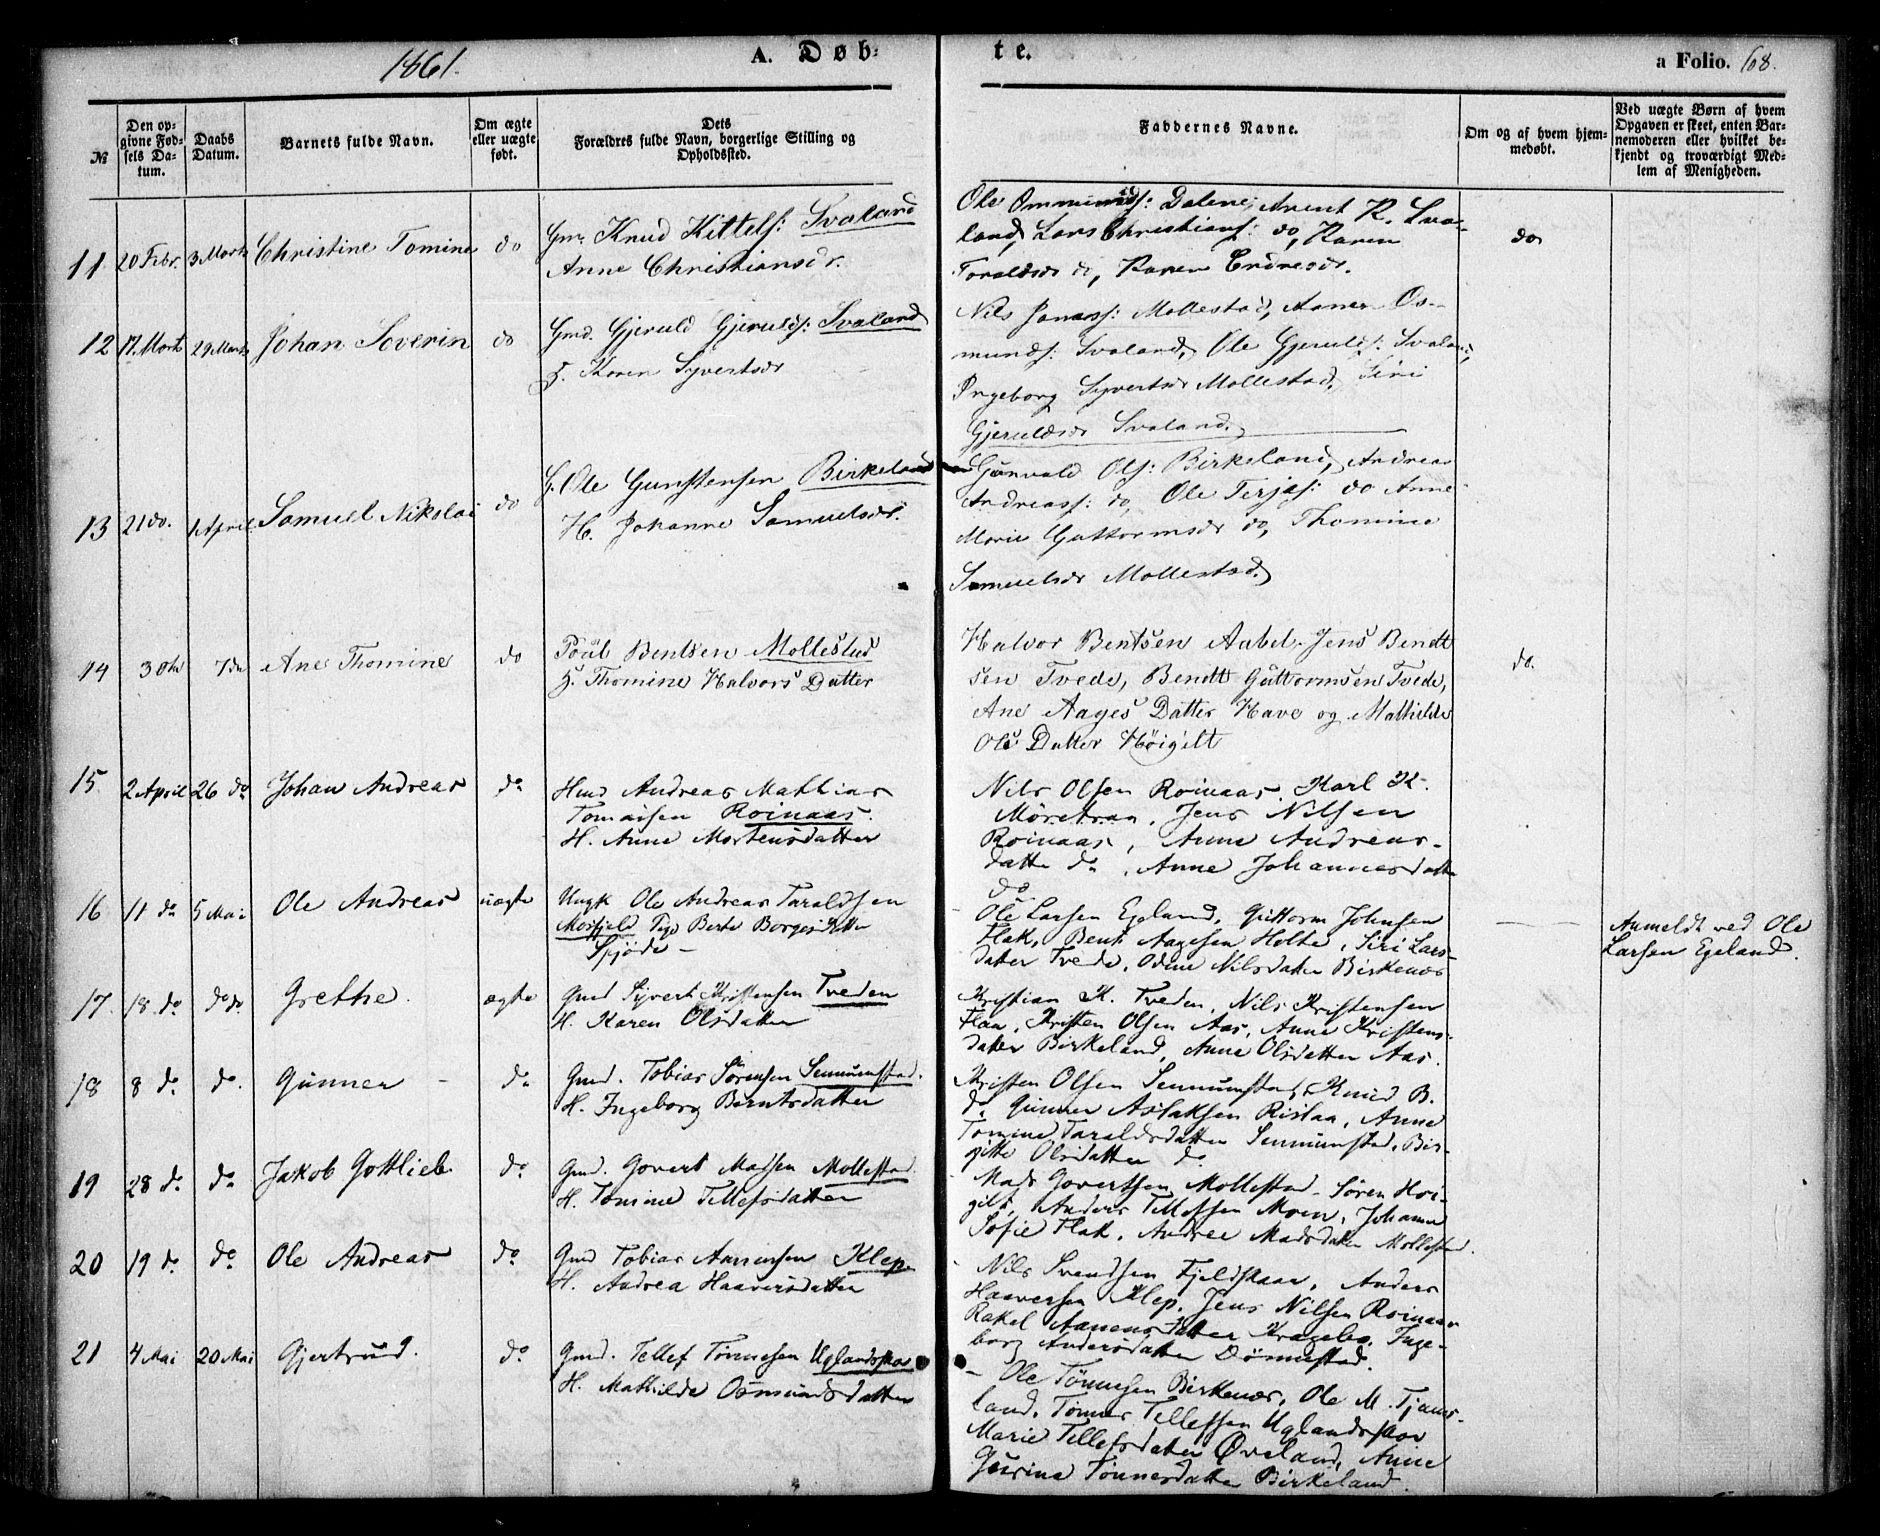 1861.
A. Døb-
te.
a Folio. 68.
№
Den op-
givne Fød-
sels Da-
tum.
Daabs
Datum.
Barnets fulde Navn.
Om ægte
eller uægte
født.
Dets
Forældres fulde Navn, borgerlige Stilling og
Opholdssted.
Faddernes Navne.
Om og af hvem hjem-
medøbt.
Ved uægte Børn af hvem
Opgaven er skeet, enten Bar-
nemoderen eller hvilket be-
kjendt og troværdigt Med-
lem af Menigheden.
11 20 Febr. 3 Marts Christine Tomine do
Gm. Knud Kittels: Svaland
Anne Christiansdr.
Ole Ommunds: Dalene, Arent K. Sva-
land, Lars Christians: do, Karen
Toraldsdr do, Karen Endresdr.
do
12 17. Marts 29 Marts Johan Severin do
Gmd. Gjeruld Gjerulds: Svaland
H. Karen Syvertsdr
Nils Jonass: Mollestad, Aanen Os-
munds: Svaland, Ole Gjerulds: Svaland,
Ingeborg Syvertsdr Mollestad, Siri
Gjeruldsdr Svaland.
13 21 do. 1 April Samuel Nikolai do
G. Ole Gunstensen Birkeland
H. Johanne Samuelsdr.
Gunvald Ols: Birkeland, Andreas
Andreass: do, Ole Terjes: do Anne
Marie Guttormsdr do, Thomine
Samuelsdr Mollestad,
14 30th 7 do Ane Thomine do
Poul Bentsen Mollestad
H. Thomine Halvors Datter
Halvor Bentsen Aabel, Jens Bendt
sen Tvede, Bendt Guttormsen Tvede,
Ane Aages Datter Have og Mathilde
Ols Datter Høigilt
do.
15. 2 April 26 do Johan Andreas do
Hmd Andreas Mathias
Tomassen Roinaas.
H. Anne Mortensdatter
Nils Olsen Roinaas. Karl K.
Møretran, Jens Nilsen
Roinaas, Anne Andreas-
datte do, Anne Johannesdatte
do
16 11 do 5 Mai Ole Andreas uægte
Ungk Ole Andreas Taraldsen
Mosfjeld Pige Berte Borgesdatter
Spjøde –
Ole Larsen Egeland, Guttorm Johnsen
Flak, Bent Aagesen Holte, Siri Lars-
dater Tvede, Odine Nilsdater Birkenes
Anmeldt ved Ole
Larsen Egeland.
17. 18. do do do Grethe. ægte
Gmd Syvert Kristensen Tveden
H. Karen Olsdatter
Kristian K. Tveden, Nils Kristensen
Flaa, Kristen Olsen Aas, Anne Kristens-
dater Birkeland, Anne Olsdatter Aas.
18 8 do do. Gunner – do
Gmd. Tobias Sørensen Senumstad.
H. Ingeborg Berntsdatter
Kristen Olsen Senumstad, Knud B.
do Gunner Aslaksen Rislaa, Anne
Tomine Taraldsdatter Senumstad, Bir-
gitte Olsdatter do
19 28 do do Jakob Gottlieb do
Gmd. Govert Madsen Mollestad.
H. Tomine Tellefsdatter
Mads Govertsen Mollestad – Søren Hoi-
gilt, Anders Tellefsen Moen, Johanne
Sofie Flak, Andrea Madsdater Mollestad.
20 19 do do Ole Andreas do
Gmd Tobias Aanensen Klep
H. Andrea Haaversdatter
Nils Svendsen Fjeldskaar, Anders
Haaversen Klep, Jens Nilsen Roinaas
Rakel Aanensdatter Kragebo, Inge-
borg Andersdatter Dønnestad.
21 4 Mai 20 Mai Gjertrud. do
Gmd. Tellef Tønnesen Uglandskas
H. Mathilde Osmundsdatter
– Ole Tønnesen Birkenes, Ole M. Tjams-
land, Tønnes Tellefsen Uglandskas
Marie Tellefsdater Øveland, Anne
Gurine Tønnesdatter Birkeland.